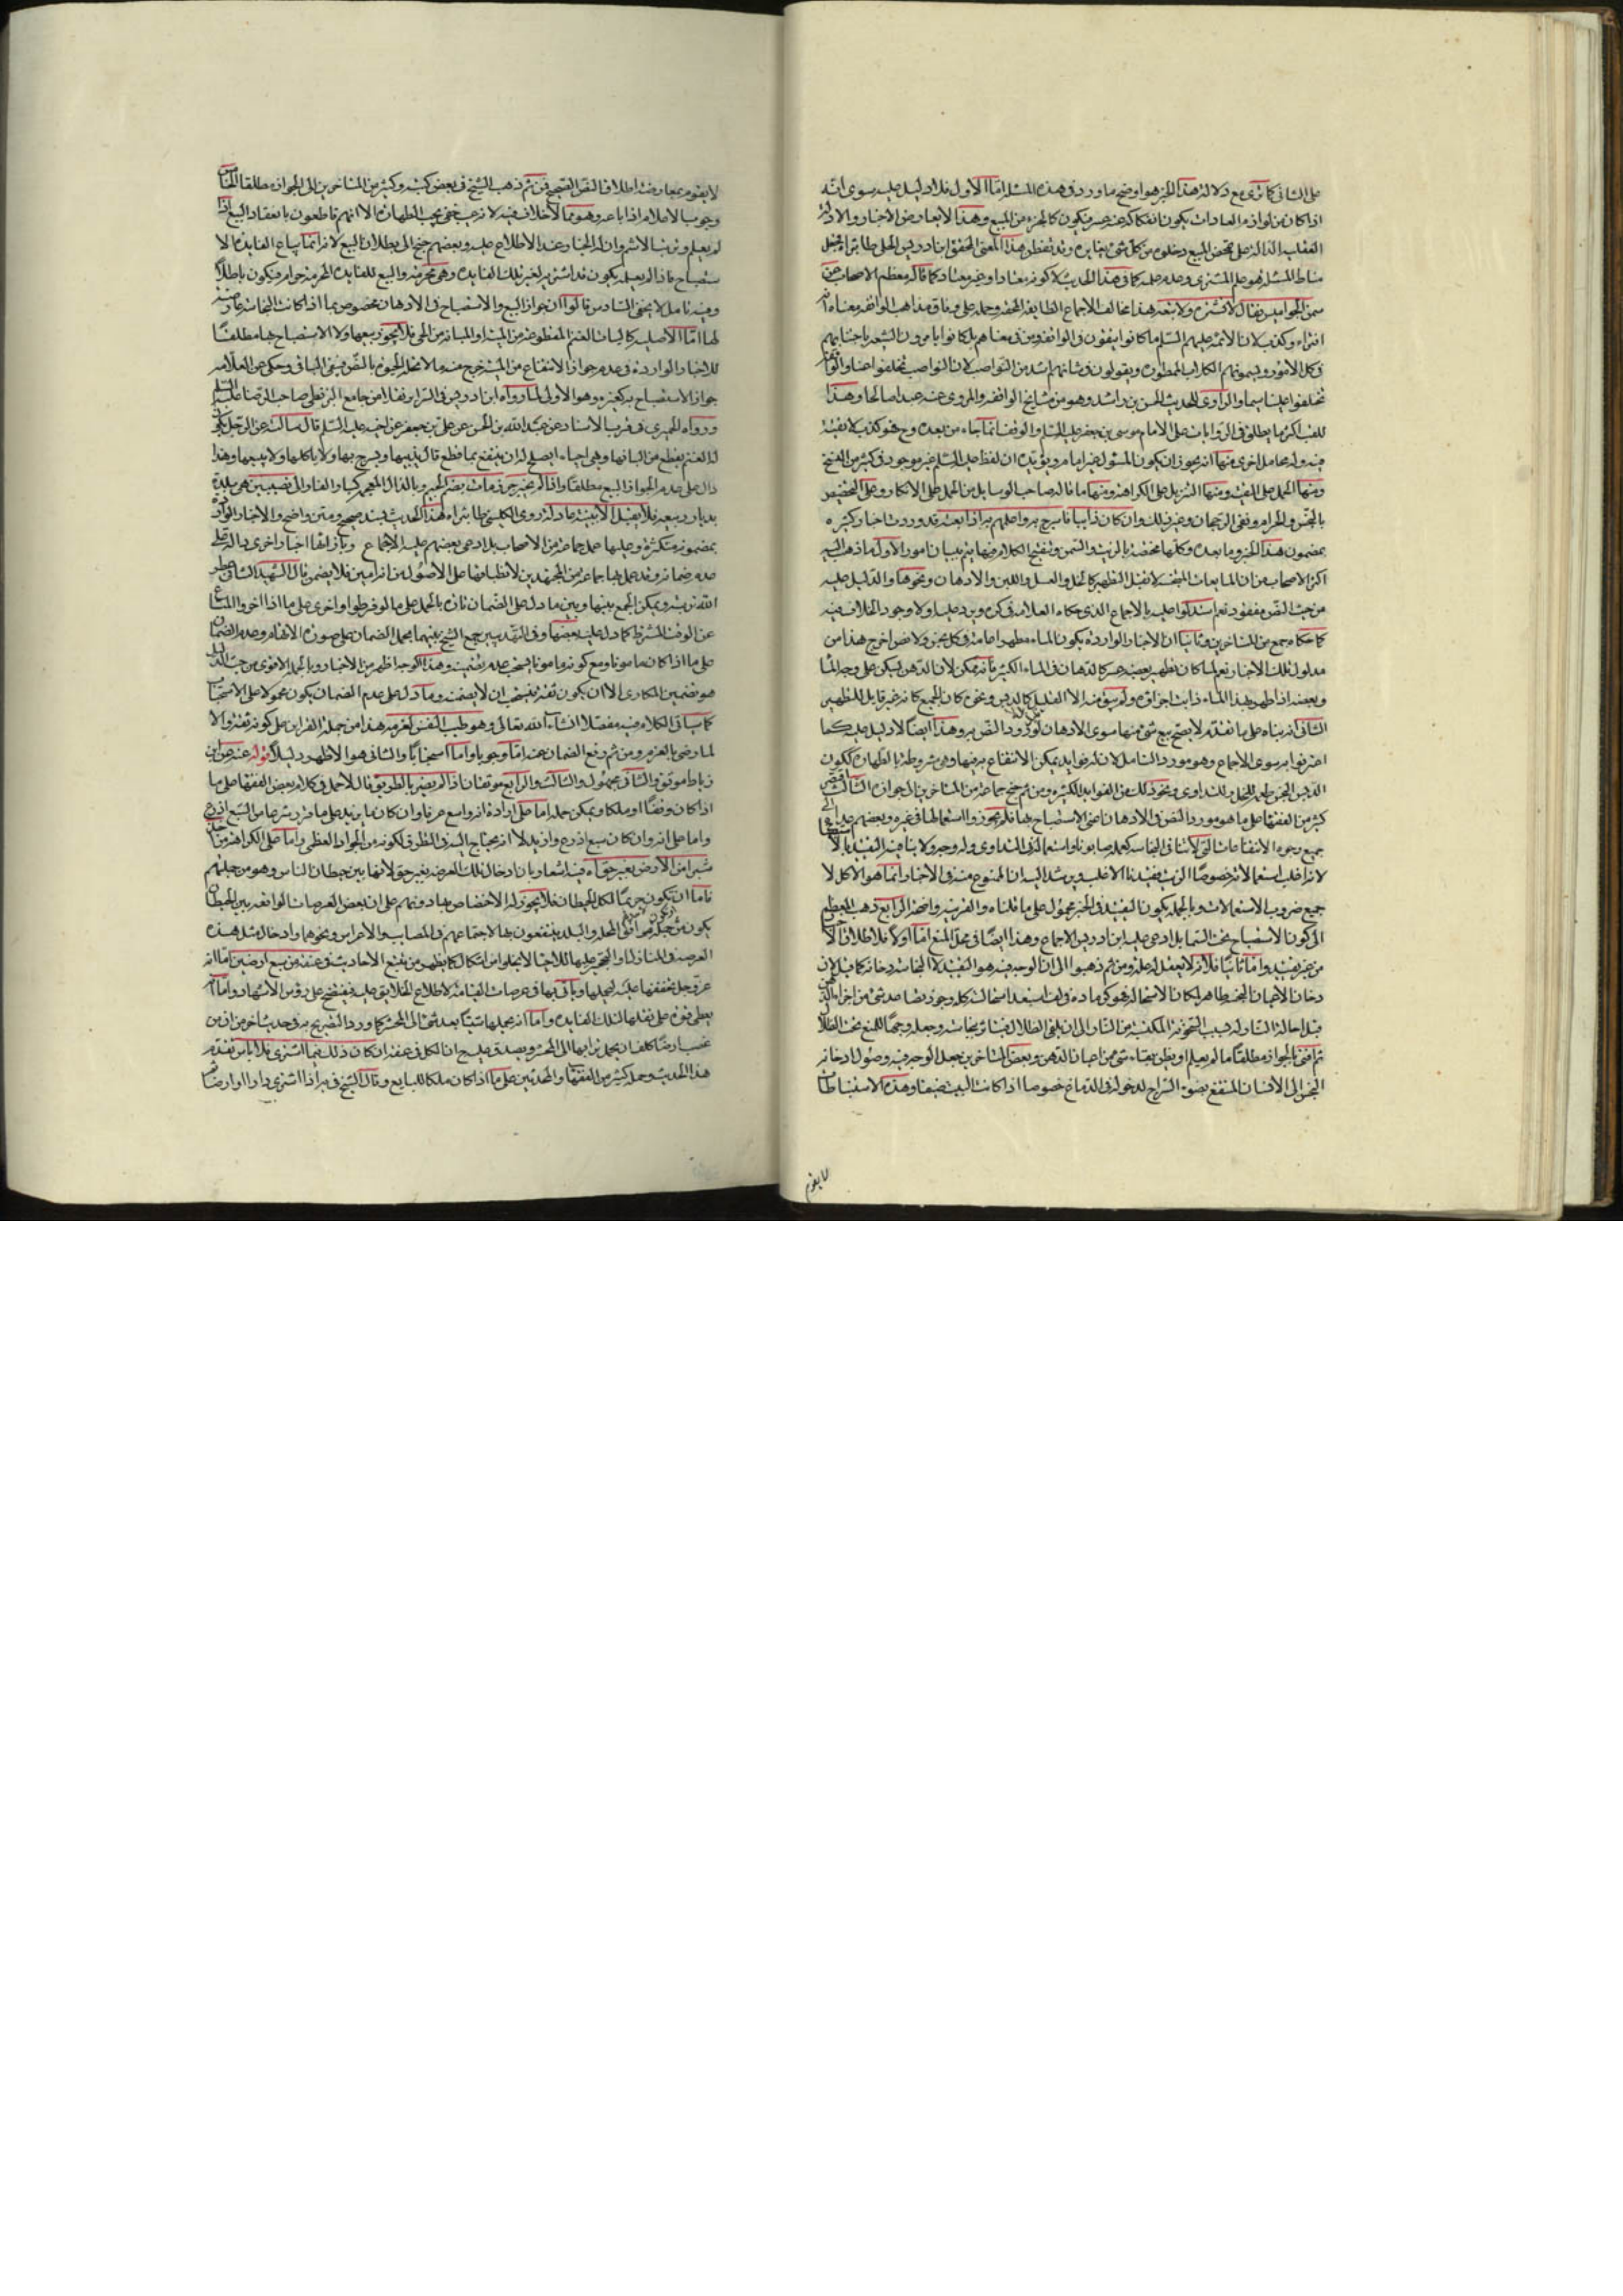 على الثانى كما ترى مع دلالة هذا الخبر هو اوضح ما ورد فى هذه المسئلة امّا الاول فلا دليل عليه سوى انّه
اذا كان من لوازم العادات يكون انفكاكه عنه عسر فيكون كالجزء من المبيع وهذا لا يعارض الاخبار والادلة
العقلية الدالة على تمحض المبيع وخلوه من كل شئ يغايره وقد تفطن هذا المعنى المحقق ابن ادريس الحلى طاب ثراه فجعل
مناط المسئلة هو علم المشترى وعدم علمه كما فى هذا الحديث لا كونه معتادا وغير معتاد وكما قاله معظم الاصحاب عن
سمن الجواميس فقال لا تشتره ولا تبعه هذا مخالف لاجماع الطايفة المحقة وحمله على وفاق مذاهب الواقفة معناه انه
افتراء وكذب لان الائمة عليهم السّلم ما كانوا يتقون فى الواقفة ومن فى معناهم بل كانوا يامرون الشيعة باجتنابهم
فى كل الامور ويسمونهم الكلاب الممطورة ويقولون فى شانهم اشد من النواصب لان النواصب تخلفوا عنا والواقفة
تخلفوا علينا سيما والراوى للحديث الحسن بن راشد وهو من مشايخ الواقفة والمروى عنه عبدا صالحا وهذا
اللقب اكثر ما يطلق فى الروايات على الامام موسى بن جعفر عليه السلم والوقف انما جاء من بعده وح فهو كذب لا تقية
فيه وله محامل اخرى منها انه يجوز ان يكون المسئول غير امام ويؤيده ان لفظ عليه السلم غير موجود فى كثير من النسخ
ومنها الحمل على التقية ومنها التنزيل على الكراهة ومنها ما قاله صاحب الوسايل من الحمل على الانكار وعلى التخصيص
بالنجس والحرام ونفى الرجحان وغير ذلك وان كان ذايبا فاسرج به واعلمهم به اذا بعته قد وردت اخبار كثيرة
بمضمون هذا الخبر وما بعده وكلها مختصة بالزيت والسمن وتنقيح الكلام فيها يتم ببيان امور الاول ما ذهب اليه
اكثر الاصحاب من ان المايعات النجسة لا تقبل التطهير كالخل والعسل واللبن والادهان ونحوها والدليل عليه
من حيث النص مفقود نعم استدلوا عليه بالاجماع الذى حكاه العلامة فى كره ويرد عليه اولا وجود الخلاف فيه
كما حكاه جمع من المتاخرين وثانيا ان الاخبار الواردة بكون الماء مطهرا عامة فى كل نجس ولا نص اخرج هذا من
مدلول تلك الاخبار نعم لما كان تطهير بعضه عسر كالدهان فى الماء الكثير فانه ممكن لان الدهن يسكن على وجه الماء
وبعضه اذا طهر بهذا الماء ذابت اجزاؤه ولم يبق منه الا القليل كالدبس ونحوه كان الجميع كانه غير قابل للتطهير
الثانى انه بناء على ما تقدم لا يصح بيع شئ منها سوى الادهان لورود النص به وهذا ايضا لا دليل عليه كما
اعترفوا به سوى الاجماع وهو مورد التامل لان له فوايد يمكن الانتفاع به فيها وهى غير مشروطة بالطهارة ككون
الدبس النجس طعم للنحل وللتداوى ونحو ذلك من الفوايد الكثيرة ومن ثم جنح جماعة من المتاخرين الى جوازه الثالث اقتصر
كثير من الفقها على ما هو مورد النص فى الادهان اعنى الاستصباح بها فلم يجوزوا استعمالها فى غيره وبعضهم عداه الى
جميع وجوه الانتفاعات التى لا تنافى النجاسة كعمله صابونا واستعماله فى التداوى وله وجه ولا ينافيه التقييد بالاستصباح
لانه اغلب استعمالاته خصوصا الزيت فقيدنا الاغلب ويرشد اليه ان الممنوع منه فى الاخبار انما هو الاكل لا
جميع ضروب الاستعمالات وبالجملة يكون التقييد فى الخبر محمول على ما قلناه والقرينة واضحة الرابع ذهب المعظم
الى كون الاستصباح تحت السّما بل ادعى عليه ابن ادريس الاجماع وهذا ايضا فى محل المنع امّا اولا فلاطلاق الاخبار
من غير تقييد وامّا ثانيا فلانه لا يعقل له علة ومن ثم ذهبوا الى ان الوجه فيه هو التقييد لا النجاسة دخانه كما قيل لان
دخان الاعيان النجسة طاهر لمكان الاستحالة
قبل احالة النار له بسبب السّخونة المكتسبة من النار الى ان يلقى الظلال فيتاثر بنجاسته وجعله وجها للمنع تحت الظلال
ثم افتى بالجواز مطلقا ما لم يعلم او يظن بقاء شئ من اعيان الدهن وبعض المتاخرين جعل الوجه فيه وصول دخانه
النجس الى الانسان المنتفع بضوء السّراج لدخوله فى الدماغ خصوصا اذا كانت البيت ضيقا وهذه الاستنباطات
لا يقوم
لا يقوم بمعارضة اطلاق النص الصحيح فمن ثم ذهب الشيخ فى بعض كتبه وكثير من المتاخرين الى الجواز مطلقا الخامس
وجوب الاعلام اذا باعه وهو مما لا خلاف فيه لانه عيب خفى يجب اظهاره الا انهم قاطعون بانعقاد البيع اذا
لم يعلم وترتب الاثم وان له الخيار عند الاطلاع عليه وبعضهم جنح الى بطلان البيع لانه انما يباح الفايدة الا
ستصباح فاذا لم يعلمه يكون قد اشترى لغير تلك الفايدة وهى محرمة والبيع للفايدة المحرمة حرام فيكون باطلاً
وفيه تامل لا يخفى السّادس قالوا ان جواز البيع والاستصباح فى الادهان مخصوص بما اذا كانت النجاسة عارضة
لها امّا الاصلية كاليات الغنم المقطوعة من الميتة او المبانة من الحى فلا يجوز بيعها ولا الاستصباح بها مطلقا
للاخبار الواردة فى عدم جواز الانتفاع من الميتة خرج منه ما لا تحله الحيوة بالنص فبقى الباقى وحكى عن العلّامة
جواز الاستصباح به كغيره وهو الاولى لما رواه ابن ادريس فى السّراير نقلا من جامع البزنطى صاحب الرضا عليه السلم
ورواه الحميرى فى قرب الاسناد عن عبد الله بن الحسن عن على بن جعفر عن اخيه عليه السّلم قال سالته عن الرّجل يكون
له الغنم يقطع من الياتها وهى احياء ايصلح له ان ينتفع بما قطع قال نعم يذيبها ويسرج بها ولا ياكلها ولا يبيعها وهذا
دال على عدم الجواز البيع مطلقا
بمضمونه متكثرة وعليها عمل جماعة من الاصحاب بل ادعى بعضهم عليه الاجماع وبازائها اخبار اخرى دالة على
عدم ضمانه وقد عمل بها جماعة من المجتهدين لانطباقها على الاصول من انه امين فلا يضمن قال الشهيد الثانى عطر
الله تربته ويمكن الجمع بينها وبين ما دل على الضمان تارة بالحمل على ما لو فرطوا واخرى على ما اذا اخروا المتاع
عن الوقت المشترط كما دل عليه بعضها وفى التهذيب جمع الشيخ بينهما بحمل الضمان على صورة الاتهام وعدم الضمان
على ما اذا كان مامونا ومع كونه مامونا يستحب عدم تضمينه وهذا الوجه اظهر من الاخبار وبالجملة الاقوى من حيث الدليل
هو تضمين المكارى الا ان يكون ثقة فيستحب ان لا يضمنه وما دل على عدم الضمان يكون محمولا على الاستحباب
كما سياتى الكلام فيه مفصلا انشاء الله تعالى وهو طيب النفس لغرمه هذا من جملة القراين على كونه ثقة والا
لما رضى بالغرم ومن ثم رفع الضمان عنه امّا وجوبا واما استحبابا والثانى هو الاظهر دليلا قوله عنه عن ابن
رباط موثق والثانى مجهول والثالث والرابع موثقان اذا لم يضر بالطريق قال لا حمل فى كلام بعض الفقها على ما
اذا كان وقفا او ملكا ويمكن حمله امّا على ارادة انه واسع عرفا وان كان ما يزيد على ما قرره شرعا من السّبع اذرع
واما على انه وان كان سبع اذرع وازيد الا انه يحتاج اليه فى النظر لكونه من الجواد العظمى واما على الكراهة من اخذ
شبرا من الارض بغير حق
فامّا ان تكون حريما لكل الحيطان فلا يجوز له الاختصاص بها دونهم على ان بعض العرصات الواقعة بين الحيطان
يكون من حيث مرافق المحلة والبلد ينتفعون بها لاجتماعهم فى المصايب والاعراس ونحوهما وادخال مثل هذه
العرصة فى المنازل او التحجير عليها للاحياء لا يخلو من اشكال كما يظهر من تتبع الاحاديث فى عنقه من سبع ارضين امّا انه
عزّ وجل يخففها عليه ليحملها وياتى بها فى عرصات القيامة لاطلاع الخلايق عليه فيفتضح على رؤس الاشهاد وامّا انه
يعطى قوة على نقلها لتلك الفايدة وامّا انه يحملها شيئا بعد شئ الى المحشر كما ورد التصريح به فى حديث اخر من ان من
غصب ارضا كلف ان يحمل ترابها الى المحشر ويصدق عليه ان الكل فى عنقه ان كان ذلك فيما اشترى فلا باس تقدم
هذا الحديث وحمله كثير من الفقها والمحدثين على ما اذا كان ملكا للبايع وقال الشيخ فى يه اذا اشترى دارا او ارضا